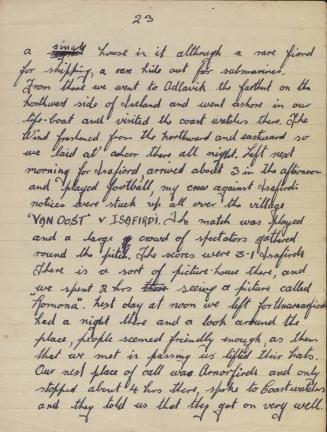 23
a single house in it although a rare fiord
for shipping, a rare hide out for submarines.
From there we went to Odlavik the farthest on the
northwest side of Iceland and went ashore in our
life-boat and visited the coast watchers there. The
Wind freshened from the northward and eastward so
we laid at anchor there all night. Left next
morning for Isafjord, arrived about 3 in the afternoon
and played football, my crew against Isafirdi
notices were stuck up all over the village
"VAN OOST" v ISAFIRDI. The match was played
and a large crowd of spectators gathered
round the pitch. The scores were 3-1 Isafirdi
There is a sort of picture-house there, and
we spent 2 hrs seeing a picture called
"Romona". Next day at noon we left for
had a night there and a look around the
place, people seemed friendly enough, as them
that we met in passing us lifted their hats.
Our next place of call was Arnorfirdi and only
stopped about 4 hrs there, spoke to Coastwatchers
and they told us that they got on very well.